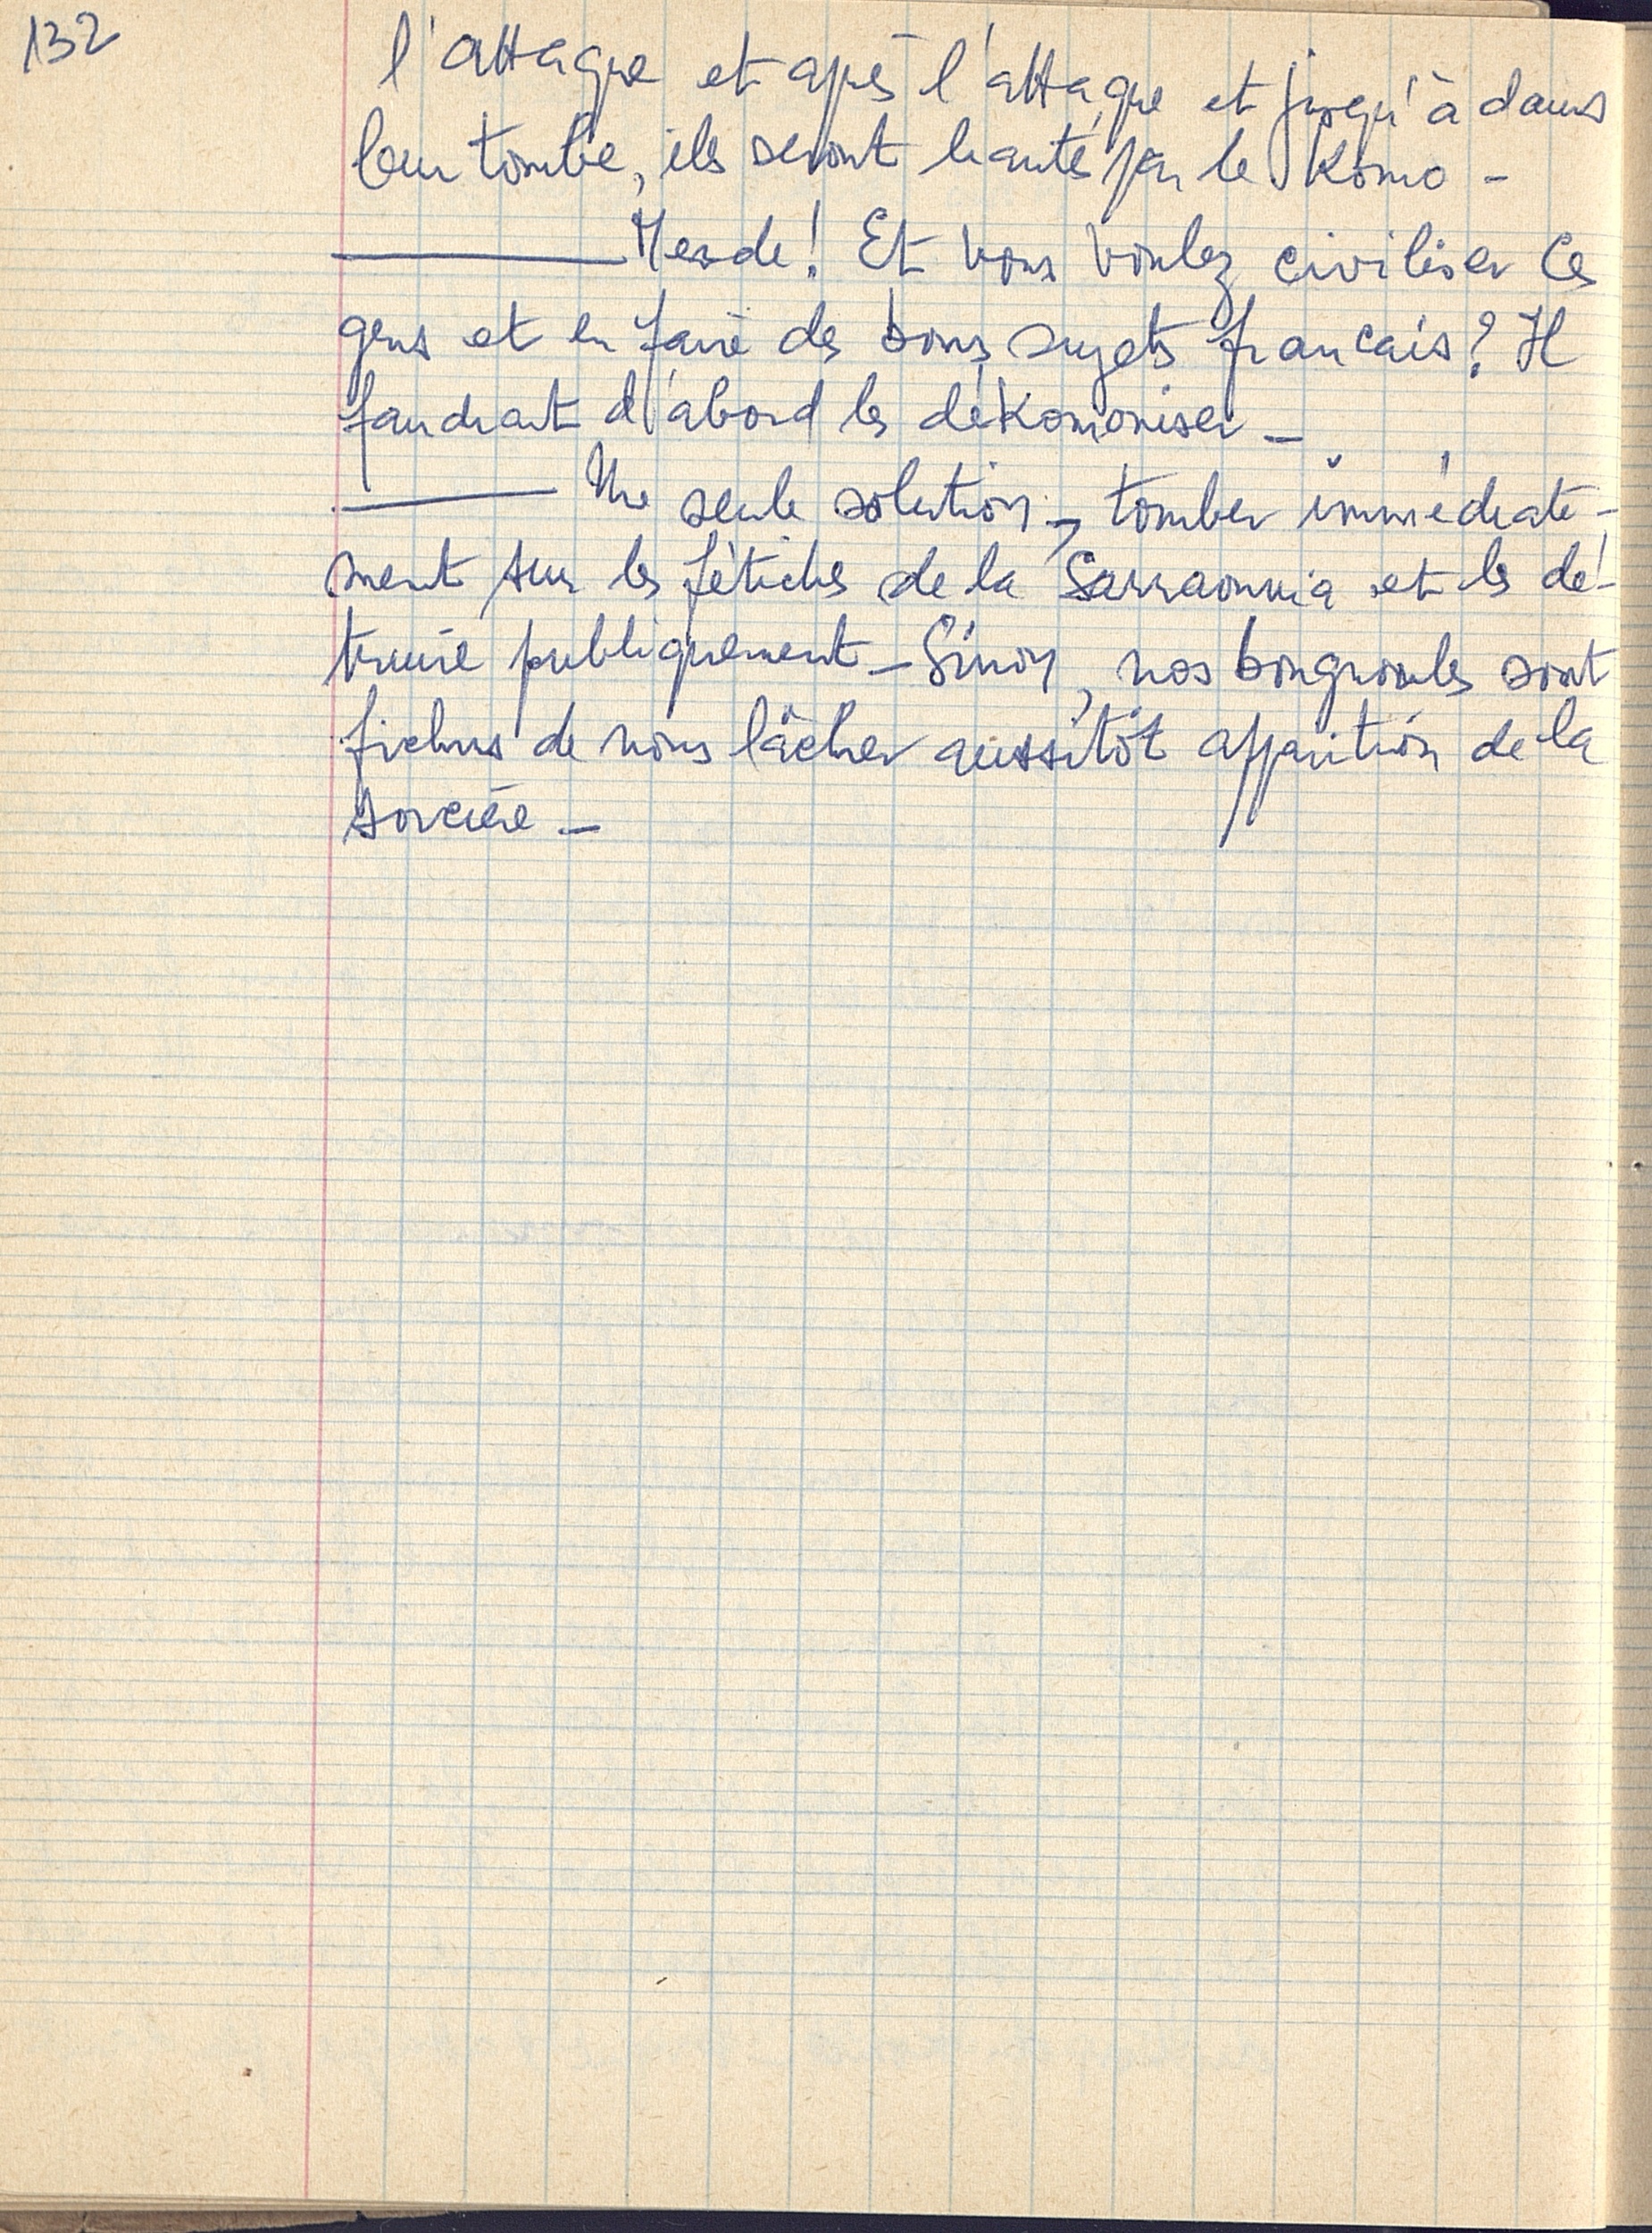 132
l'attaque et après l'attaque et jusqu'à dans
leur tombe, ils seront hantés par le Komo -
——— Merde! Et vous voulez civiliser ces
gens et en faire des bons sujets français? Il
faudrait d'abord les dékomoniser -
——— Une seule solution -, tomber immédiate-
ment sur les fétiches de la Sarraounia et les dé-
truire publiquement - Sinon, nos bougnoules sont
fichus de nous lâcher aussitôt apparition de la
sorcière -